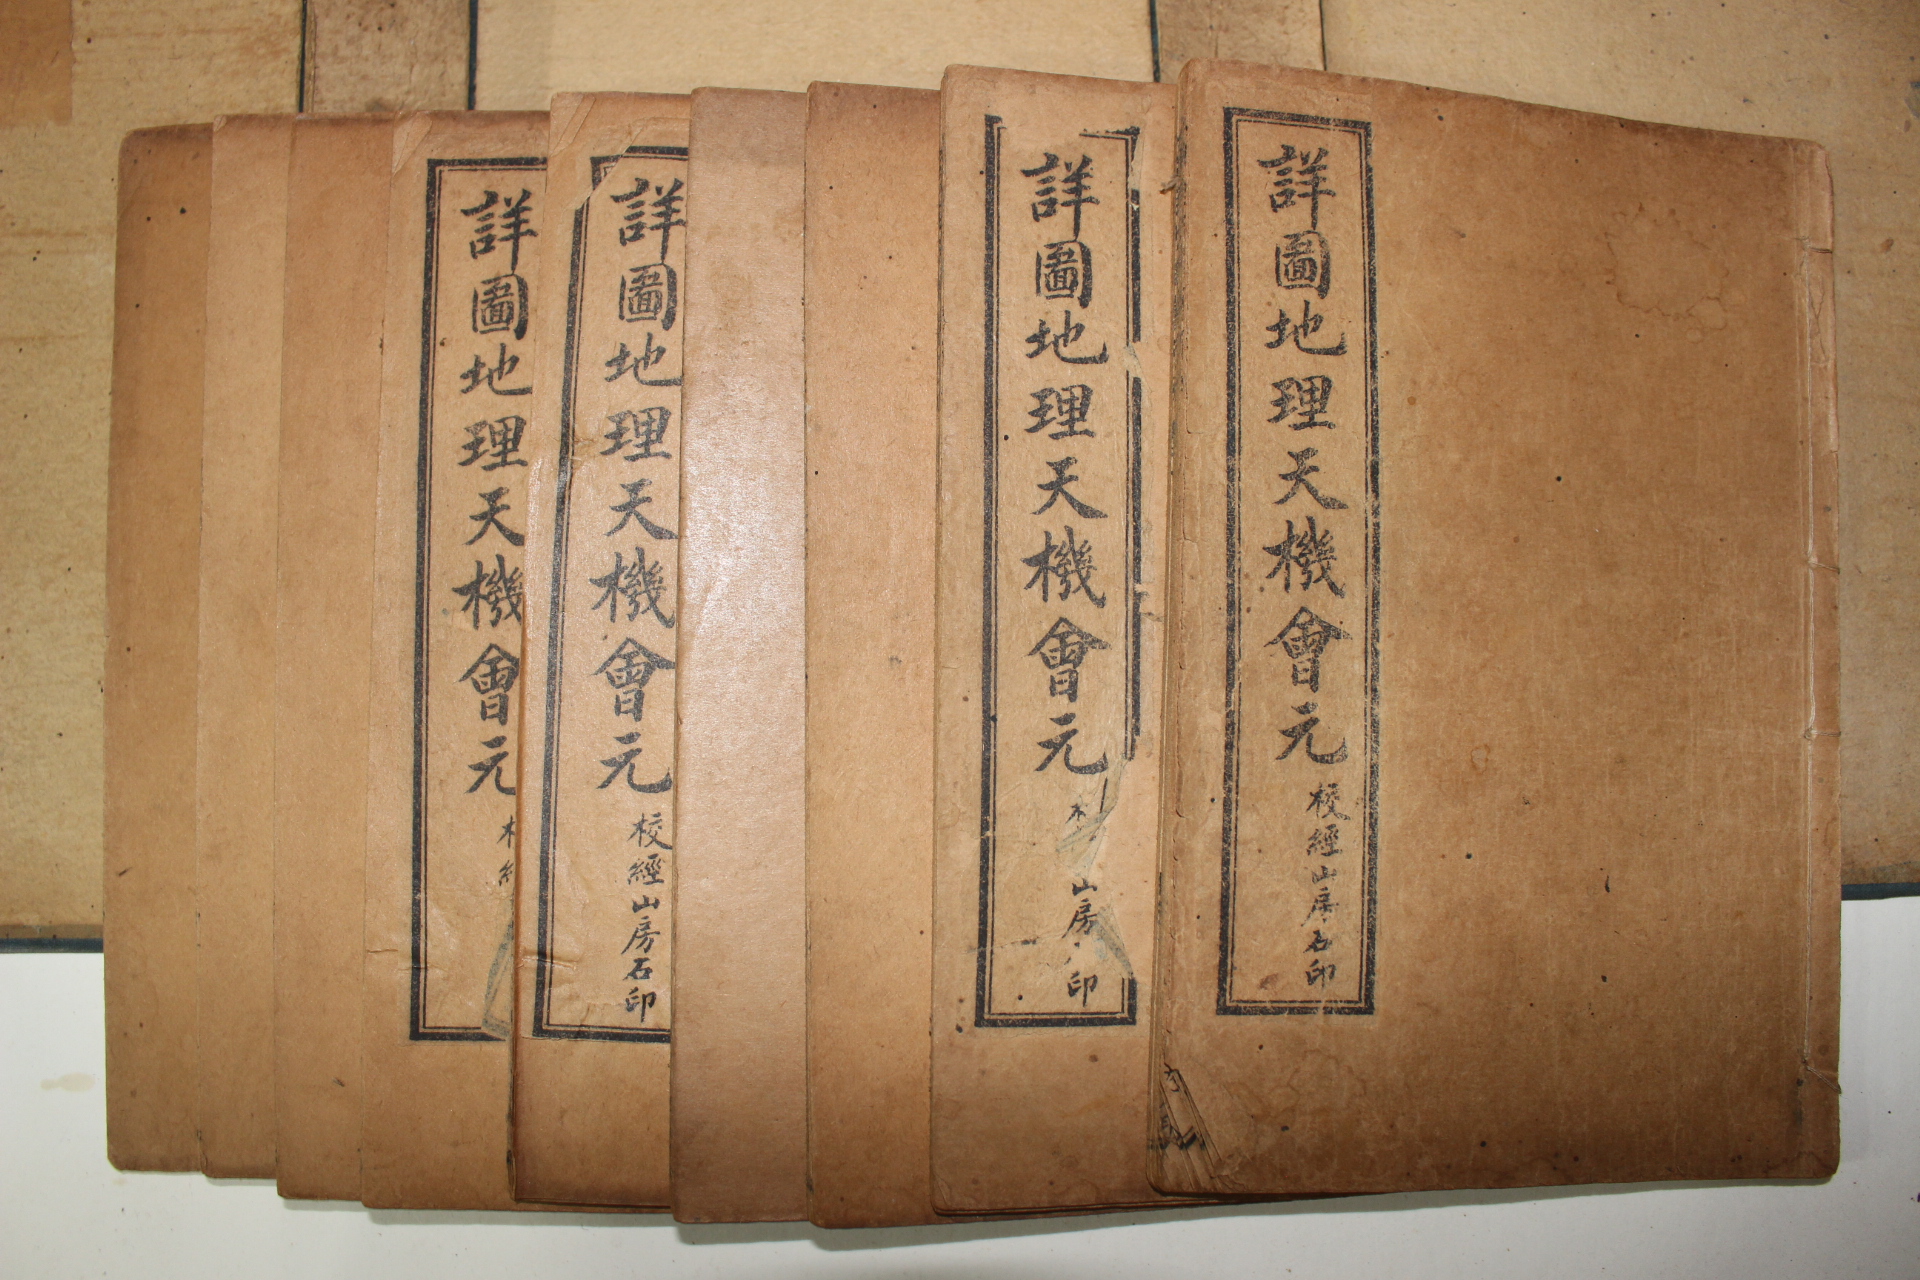 詳圖地理天機會元
校經山房石印
詳圖地理天機會元
山房 印
詳圖地理天機會元
校經山房石印
詳圖地理天機會元